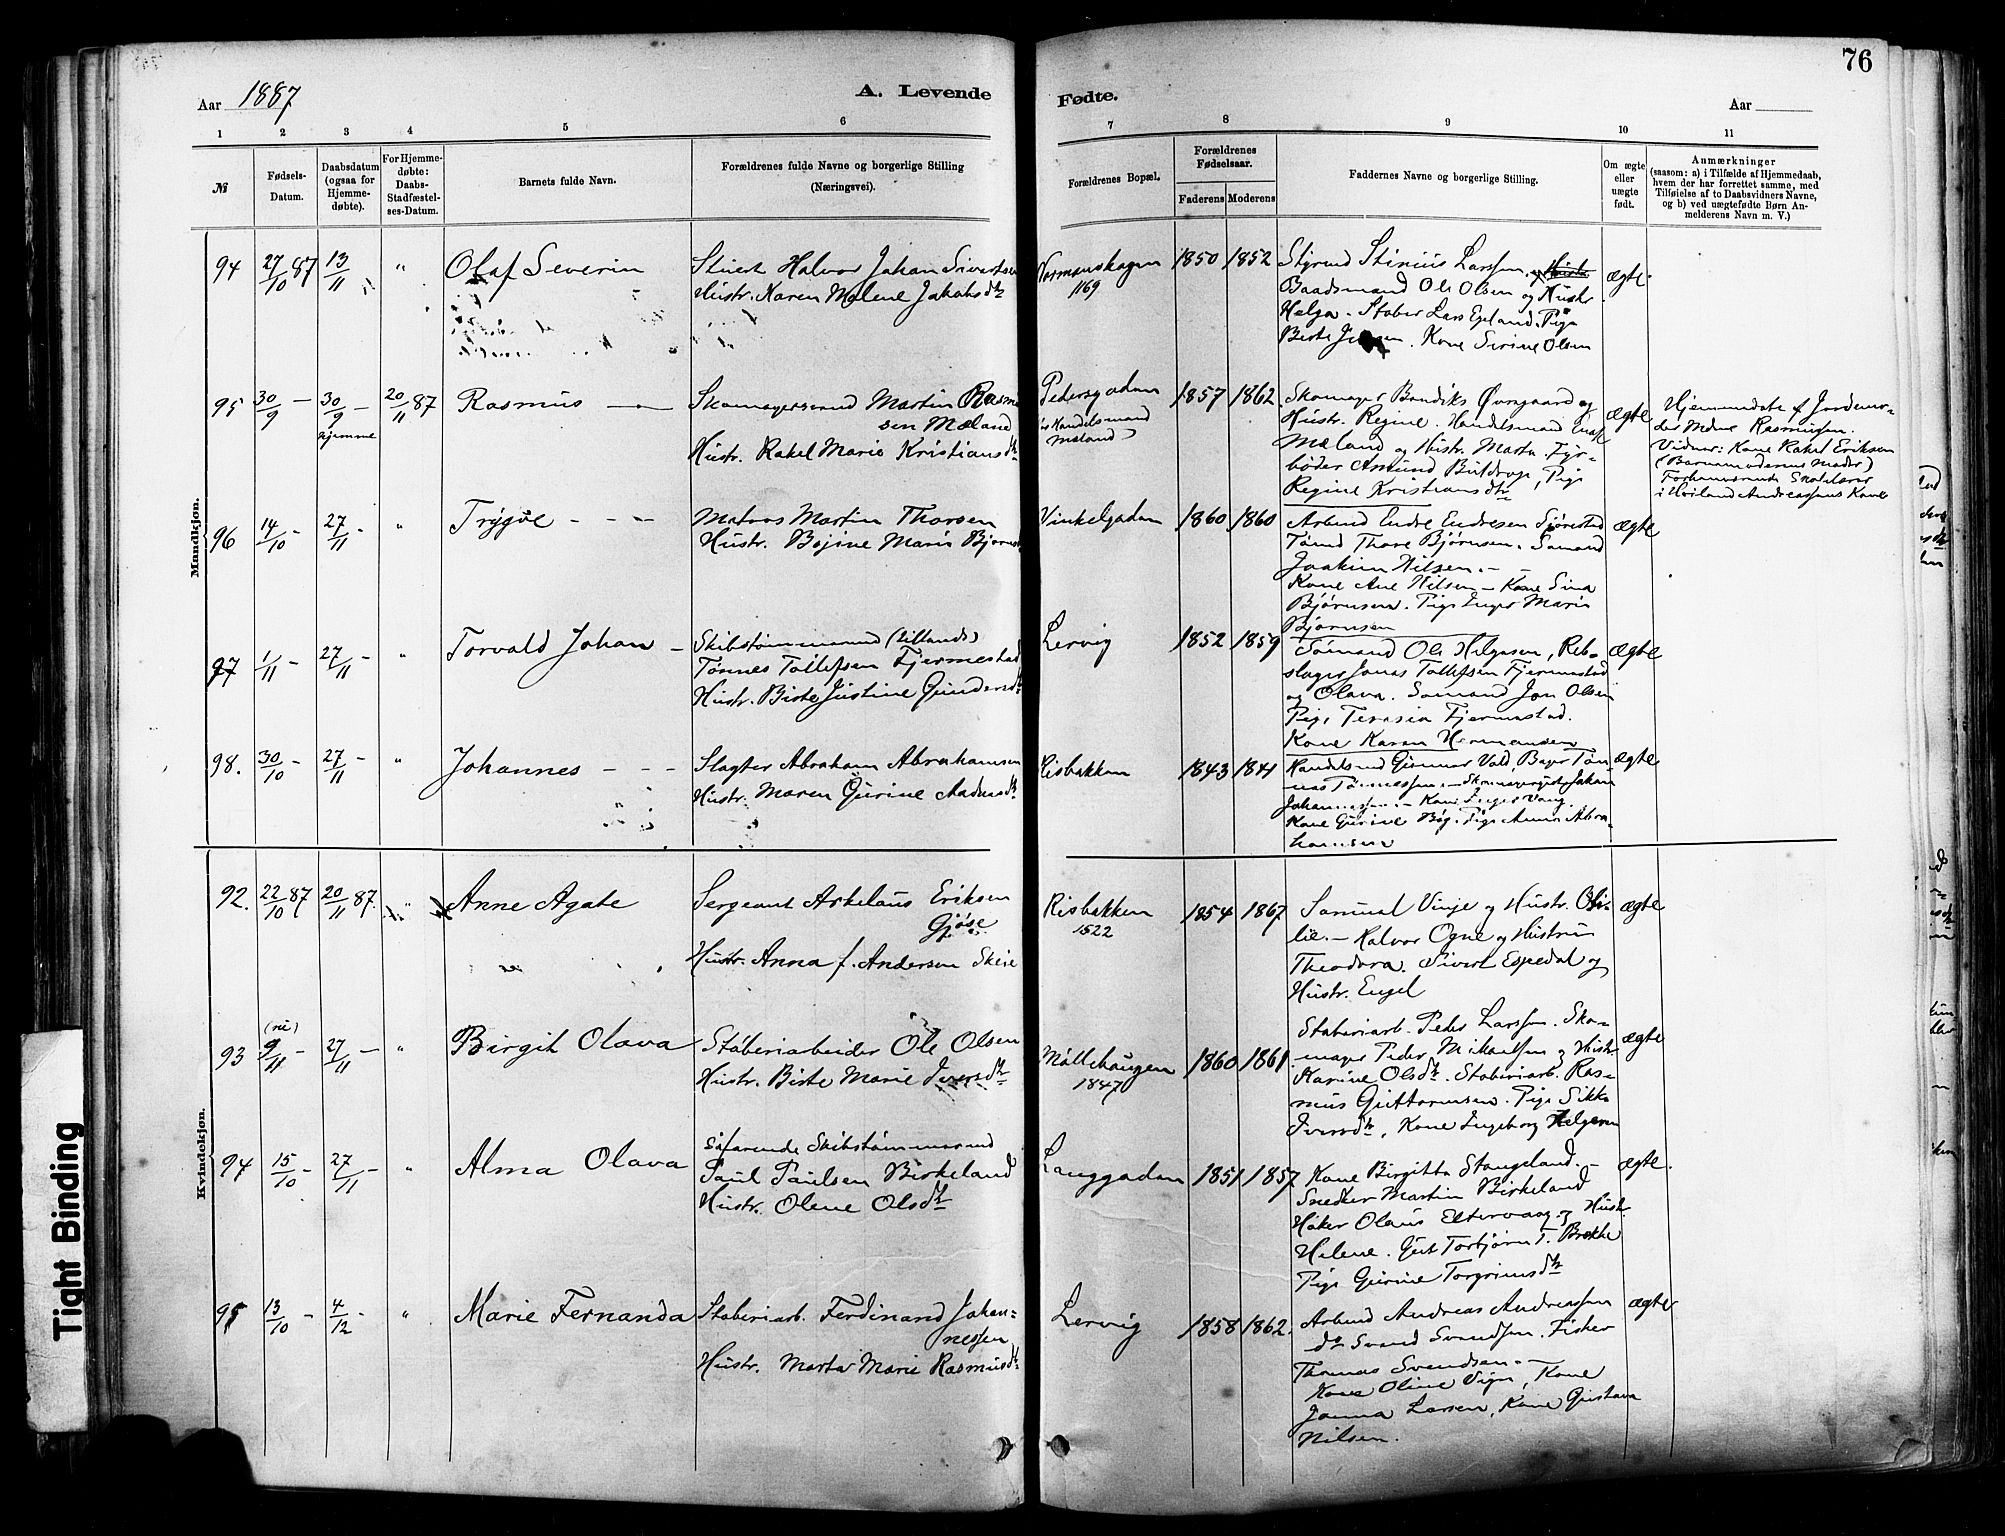 76
Aar 1887
A. Levende
Fødte.
Aar
1 2 3 4 5 6 7 8 9 10 11
№
Fødsels-
Datum.
Daabsdatum
(ogsaa for
Hjemme-
døbte).
For Hjemme-
døbte:
Daabs-
Stadfæstel-
ses-Datum.
Barnets fulde Navn.
Forældrenes fulde Navne og borgerlige Stilling
(Næringsvei).
Forældrenes Bopæl.
Forældrenes
Fødselsaar.
Faderens Moderens
Faddernes Navne og borgerlige Stilling.
Om ægte
eller
uægte
født.
Anmærkninger
(saasom: a) i Tilfælde af Hjemmedaab,
hvem der har forrettet samme, med
Tilføielse af to Daabsvidners Navne,
og b) ved uægtefødte Børn An-
melderens Navn m. V.)
Mandkjøn.
94 27/10 87 13/11 " Olaf Severin
Stuert Halvor Johan Sivertsen
Hustr. Karen Malene Jakobsdtr
1169
1850 1852
Styrmd Stinius Larssen
Baadsmand Ole Olsen og Hustr.
Helga. Støber Lars Egeland. Pige
Berte. Kone Serine Olsen
ægte
95 30/9 - 30/9 - 20/11 87
hjemme
Rasmus
Skomagersvend Martin Rasmu
sen Mæland
Hustr. Rakel Marie Kristiansdtr
Pedersgaden
Handelsmand
Mæland)
1857 1862
Skomager Øvregaard og
Hustr. Regine. Handelsmand
Mæland og Hustr. Marta. Fyr-
bøder Amund, Pige
Regine Kristiansdtr
ægte
Hjemmedøbt af Jordemo-
Rasmussen.
Vidner: Kone Rakel Eriksen
(Barnemoderens Moder)
96 14/10 - 27/11 - " Trygve - - -
Matros Martin Thorsen
Hustr. Bojine Marie
Vinkelgaden
1860 1860
Arbmd Endre Endresen
Tømd Thore Bjørnsen. Sømand
Joakim Nilsen. -
Kone Ane Nilsen - Kone Sina
Bjørnsen. Pige Inger Marie
Bjørnsen
ægte
97 1/11 - 27/11 - " Torvald Johan -
Skibstømmermd (tillands)
Tønnes Tollefsen Fjermestad
Hustr. Berte Justine Gundersdtr
Lervig
1852 1859
Sømand Ole Helgesen, Reb-
slager Jonas Tollefsen Fjermestad
og Olava. Sømand Jon Olsen
Pige Teresia Fjermestad.
Kone Karen Hermansen
ægte
98. 30/10 - 27/11 " Johannes - - -
Slagter Abraham Abrahamsen
Hustr. Maren Gurine
Risbakken
1843 1841
Handelsmd Gunnar Vold, Bager Tøn-
nes Tønnessen - Johan
Johannessen. - Kone Inger
Kone Gurine Bøg. Pige Anna Abra-
hamsen
ægte
Kvindekjøn.
92. 22/10 87 20/11 87. " Anne Agate
Sergeant Arkelaus Eriksen
Gjøse
Hustr. Anna f. Andersen Skeie
Risbakken
1522
1854 1867
Samuel Vinje og Hustr. Oti-
lie. - Halvor Ogne og Hustru
Theodora. Sivert Espedal og
Hustr. Engel
ægte
93 (ni) 9/11 - 27/11 - " Birgit Olava
Støberiarbeider Ole Olsen
Hustr. Berte Marie Iversdtr
Møllehaugen
1847
1860 1861
Støberiarb. Peder Larssen. Sko-
mager Peder Mikaelsen og Hustr.
Karine Olsdtr. Støberiarb. Ras-
mus Guttormsen. Pige Sikke
Iversdtr, Kone Ingeborg Helgesen
ægte
94 15/10 - 27/11 - " Alma Olava
Søfarende Skibstømmermd
Paul Paulsen Birkeland
Hustr. Olene Olsdtr
Langgaden
1851 1857
Kone Birgitta Stangeland. -
Snedker Martin Birkeland
Høker Olaus Eltervaag og Hustr.
Helene. Torbjørn T. Brekke
Pige Gurine Torgrimsdtr
ægte.
95 13/10 - 4/12 - " Marie Fernanda
Støberiarb. Ferdinand Johan-
nessen
Hustr. Marta Marie Rasmusdtr
Lervig
1858 1862.
Arbmd Andreas Andreassen
do Svend Svendsen. Fisker
Thomas Svendsen. -
Kone Oline Vign, Kone
Janna Larsen, Kone Gustava
Nilsen.
ægte
Tight Binding